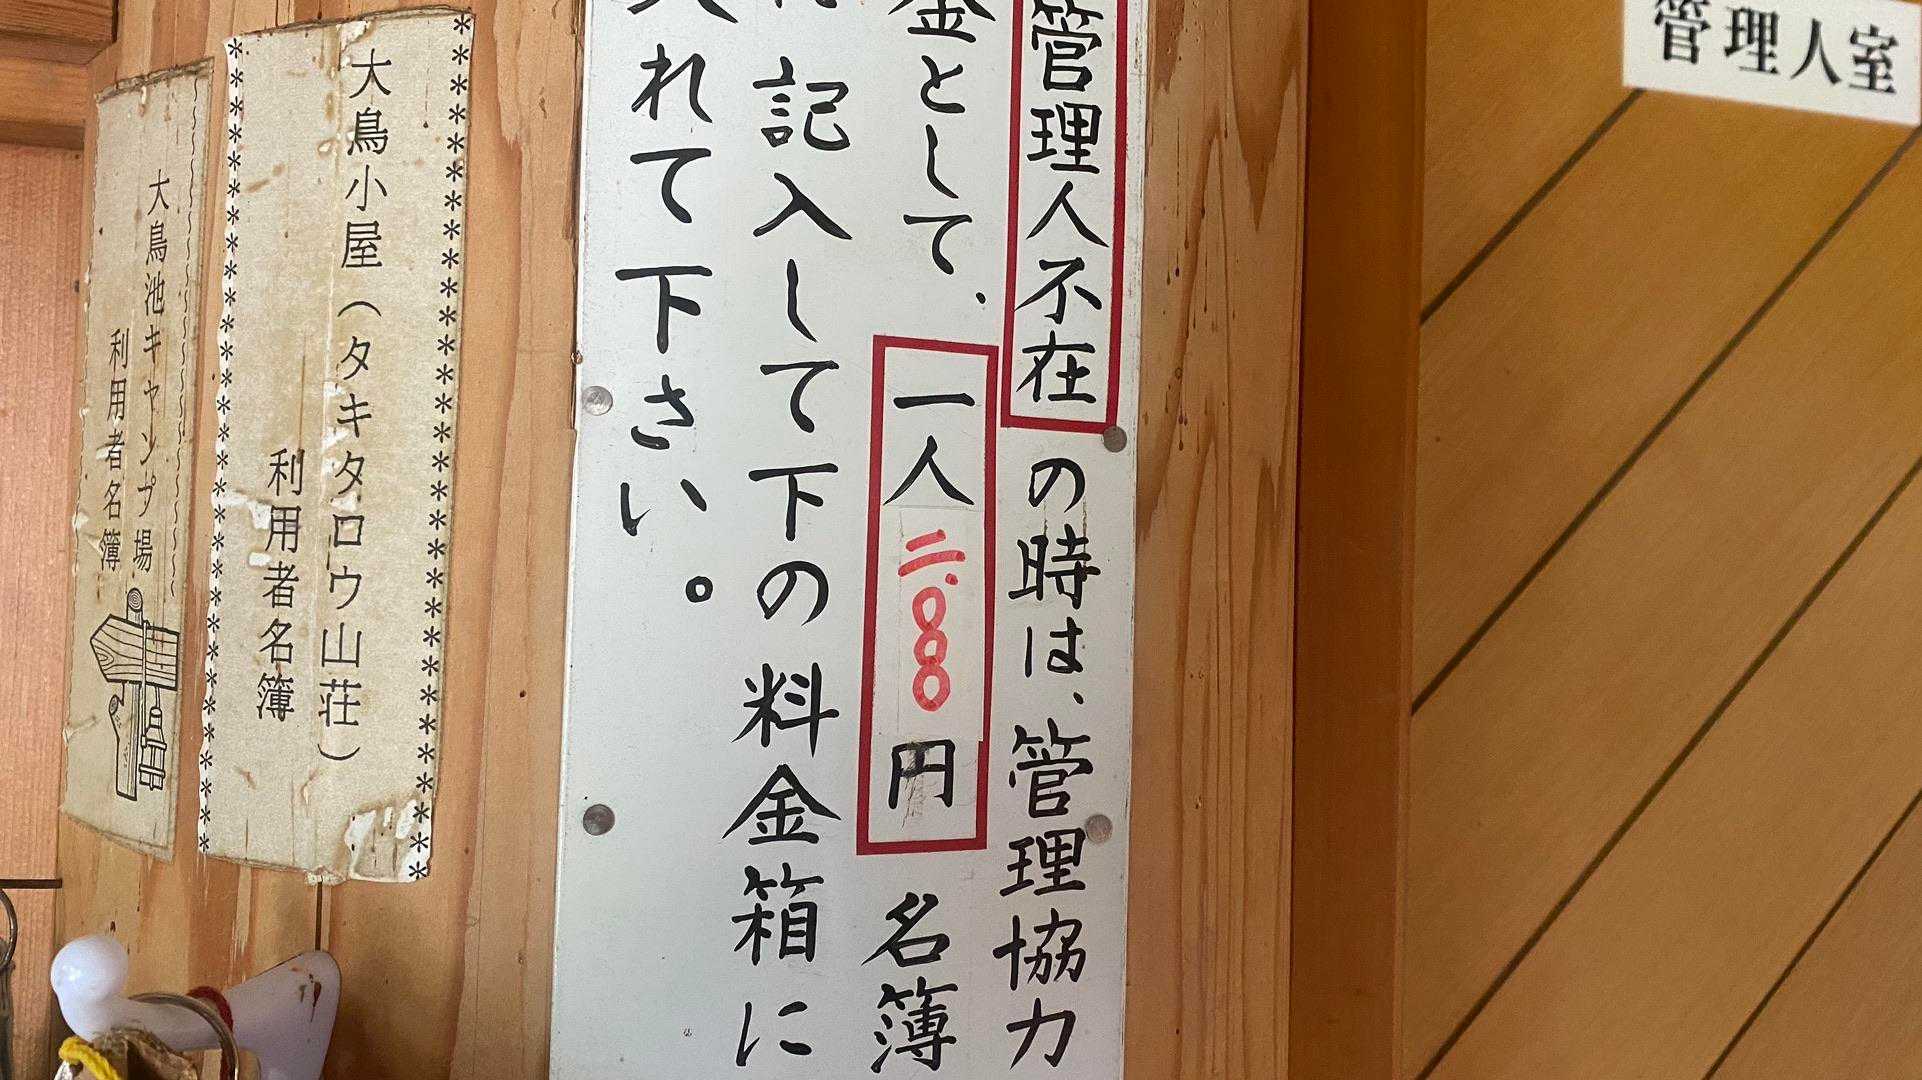 管理人室
管理人不在の時は、管理協力
金として、一人二.〇〇〇円 名簿
記入して下の料金箱に
入れて下さい。
大鳥小屋(タキタロウ山荘)
利用者名簿
大鳥池キャンプ場
利用者名簿